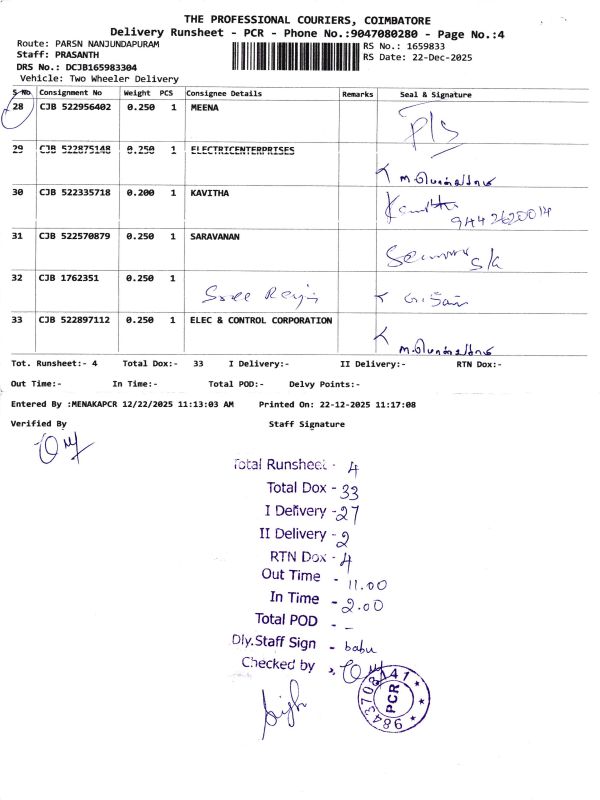 THE PROFESSIONAL COURIERS, COIMBATORE
Delivery Runsheet - PCR - Phone No.:9047080280 - Page No.:4
Route: PARSN NANJUNDAPURAM
RS No.: 1659833
Staff: PRASANTH
RS Date: 22-Dec-2025
DRS No.: DCJB165983304
Vehicle: Two Wheeler Delivery
S No. Consignment No Weight PCS Consignee Details Remarks Seal & Signature
28 CJB 522956402 0.250 1 MEENA P/S
29 CJB 522875148 0.250 1 ELECTRICENTERPRISES
30 CJB 522335718 0.200 1 KAVITHA
9442620014
31 CJB 522570879 0.250 1 SARAVANAN
32 CJB 1762351 0.250 1
33 CJB 522897112 0.250 1 ELEC & CONTROL CORPORATION
Tot. Runsheet:- 4 Total Dox:- 33 I Delivery:- II Delivery:- RTN Dox:-
Out Time:- In Time:- Total POD:- Delvy Points:-
Entered By :MENAKAPCR 12/22/2025 11:13:03 AM Printed On: 22-12-2025 11:17:08
Verified By Staff Signature
Total Runsheet - 4
Total Dox - 33
I Delivery - 27
II Delivery - 2
RTN Dox - 4
Out Time - 11.00
In Time - 2.00
Total POD - -
Dly.Staff Sign - babu
Checked by
PCR